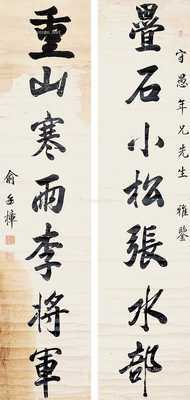 守愚年兄先生 雅鑒
疊石小松張水部
重山寒雨李將軍
俞岳樟